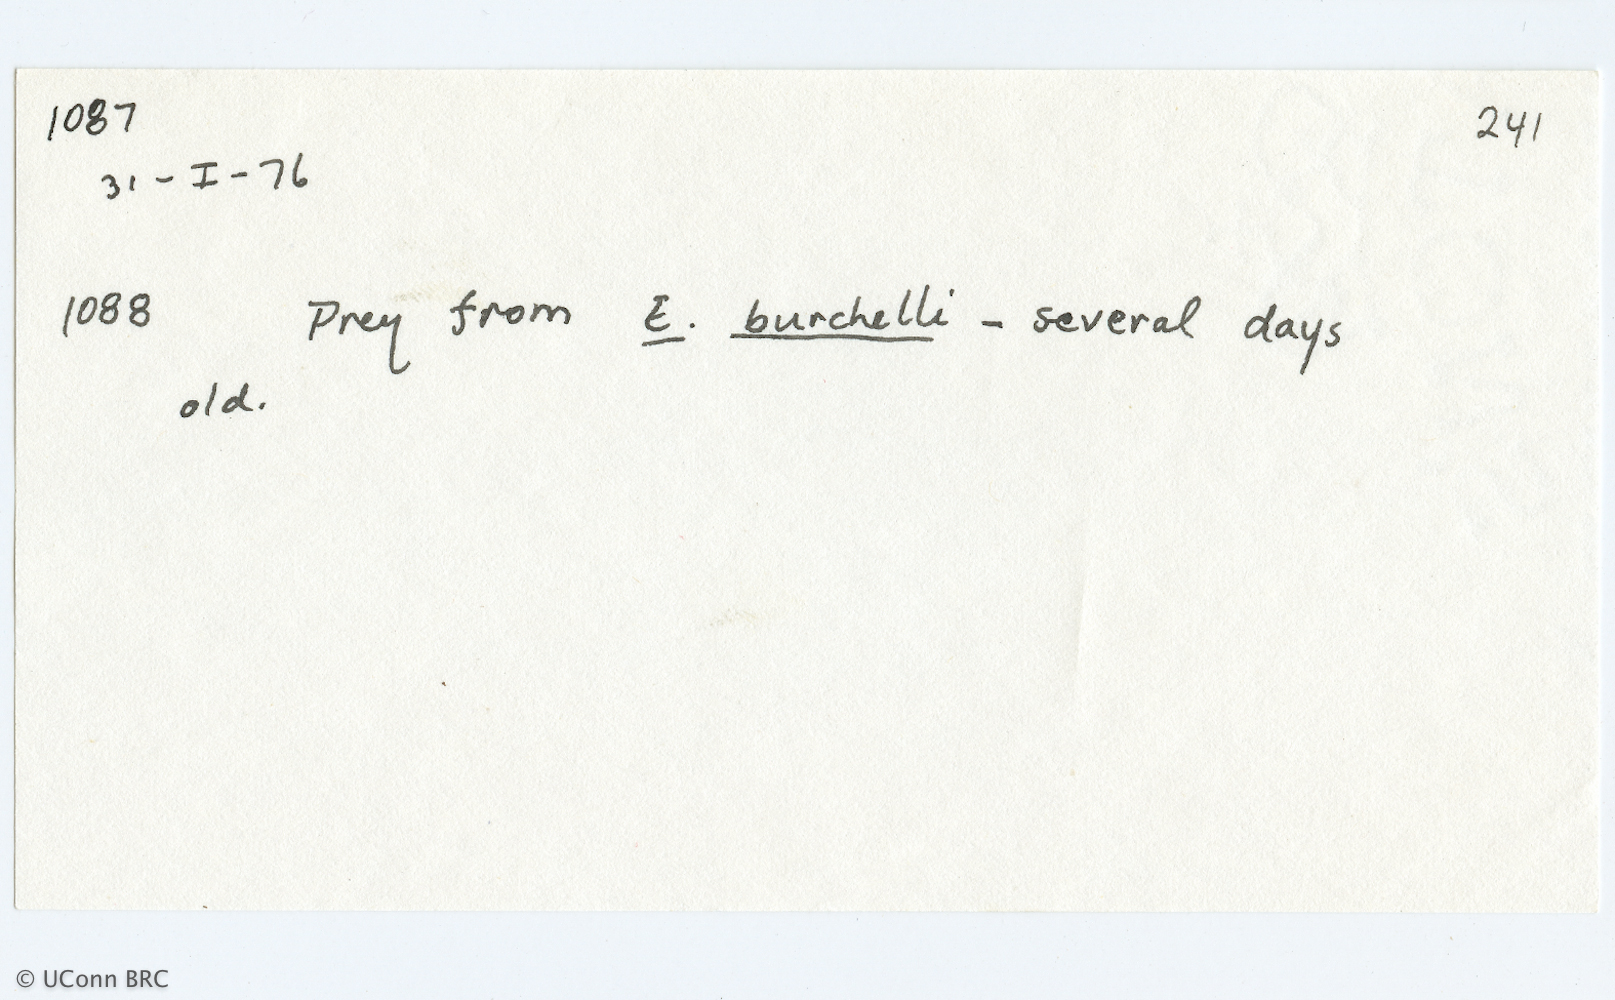 1087 241
31 - I - 76
1088 Prey from E. burchelli - several days
old.
© UConn BRC